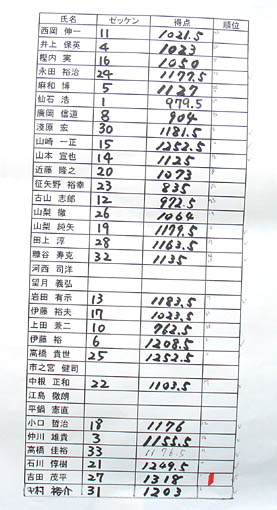 氏名 ゼッケン 得点 順位
西岡 伸一 11 1021.5
井上 保英 4 1023
樫内 実 16 1050
永田 裕治 29 1177.5
麻和 博 5 1127
仙石 浩 1 979.5
廣岡 信道 8 904
淺原 宏 30 1181.5
山崎 一正 15 1252.5
山本 宣也 14 1125
近藤 隆之 20 1073
征矢野 裕幸 23 835
古山 志郎 12 972.5
山梨 徹 26 1064
山梨 純矢 19 1179.5
田上 淳 28 1163.5
糠谷 寿克 32 1135
河西 司洋
望月 義弘
岩田 有示 13 1183.5
伊藤 裕夫 17 1023.5
上田 兼二 10 962.5
伊藤 裕 6 1208.5
高橋 貴世 25 1252.5
市之宮 健司
中根 正和 22 1103.5
江島 徹朗
平鍋 憲直
小口 哲治 18 1176
仲川 雄貴 3 1155.5
高橋 佳裕 33 1176.5
石川 惇樹 21 1249.5
吉田 茂天 27 1318
木村 裕介 31 1203